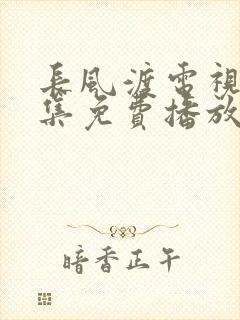 長風渡電視
集免費播放
暗香正午